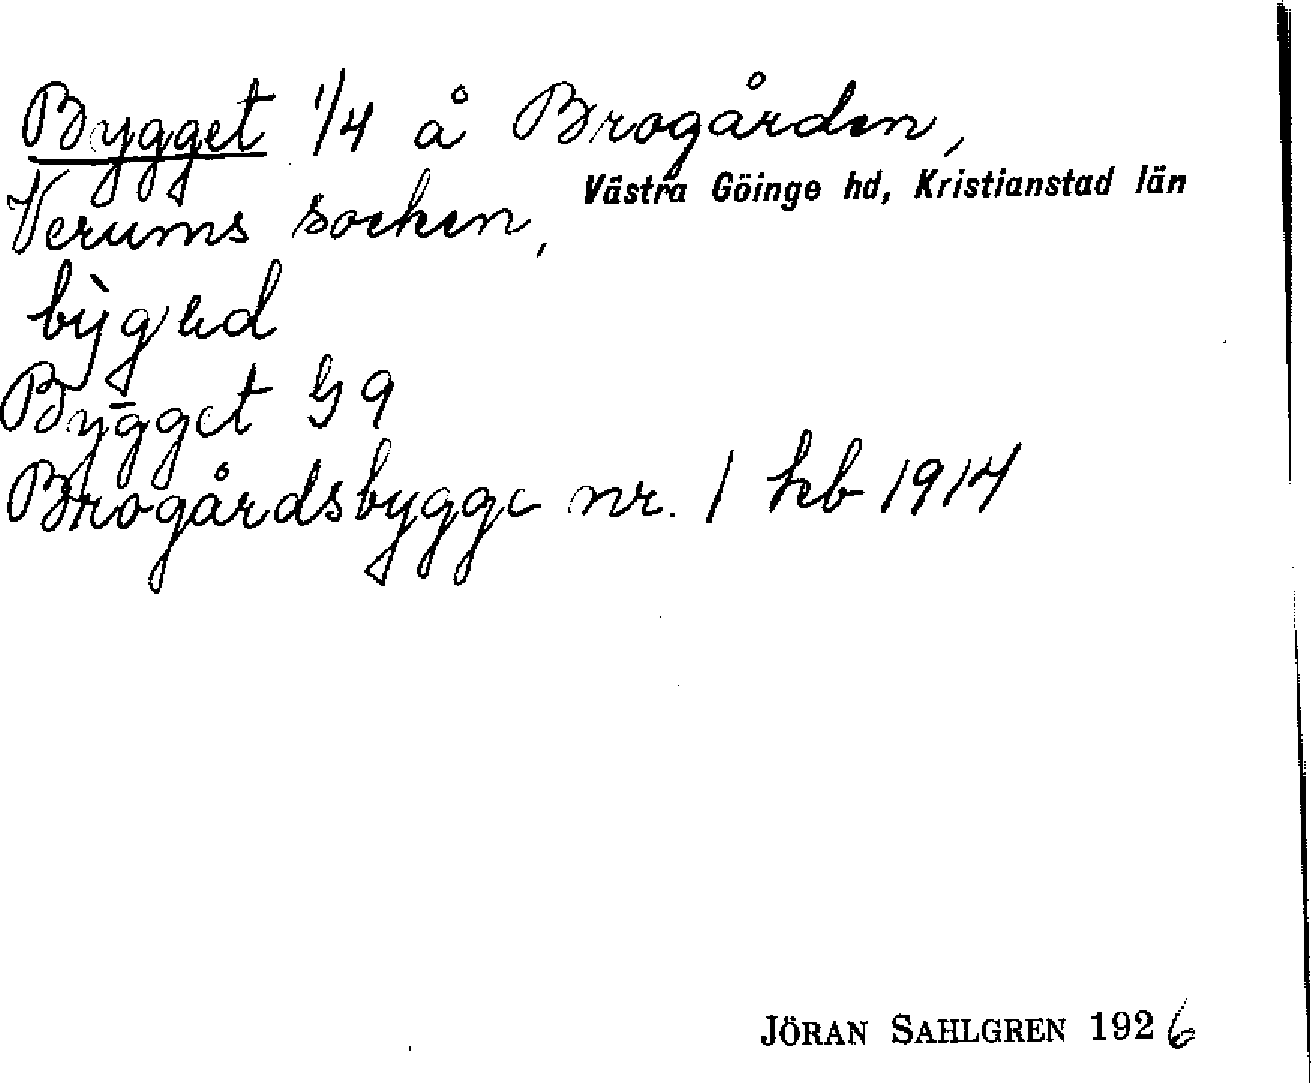 Bygget 1/4 å Brogården,
Verums socken, Västra Göinge hd, Kristianstad län
Bygget G 9
Brogårdsbygge nr. 1 hb 1914
JÖRAN SAHLGREN 1926